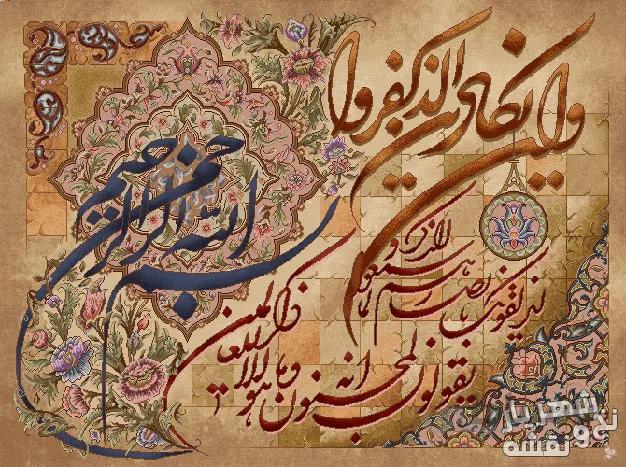 بسم الله الرحمن الرحیم
وان یکاد الذین کفروا
لیزلقونک بابصارهم لما سمعوا الذکر و
یقولون انه لمجنون
وما هو الا ذکر للعالمین
شهریار
نخ و نقشه